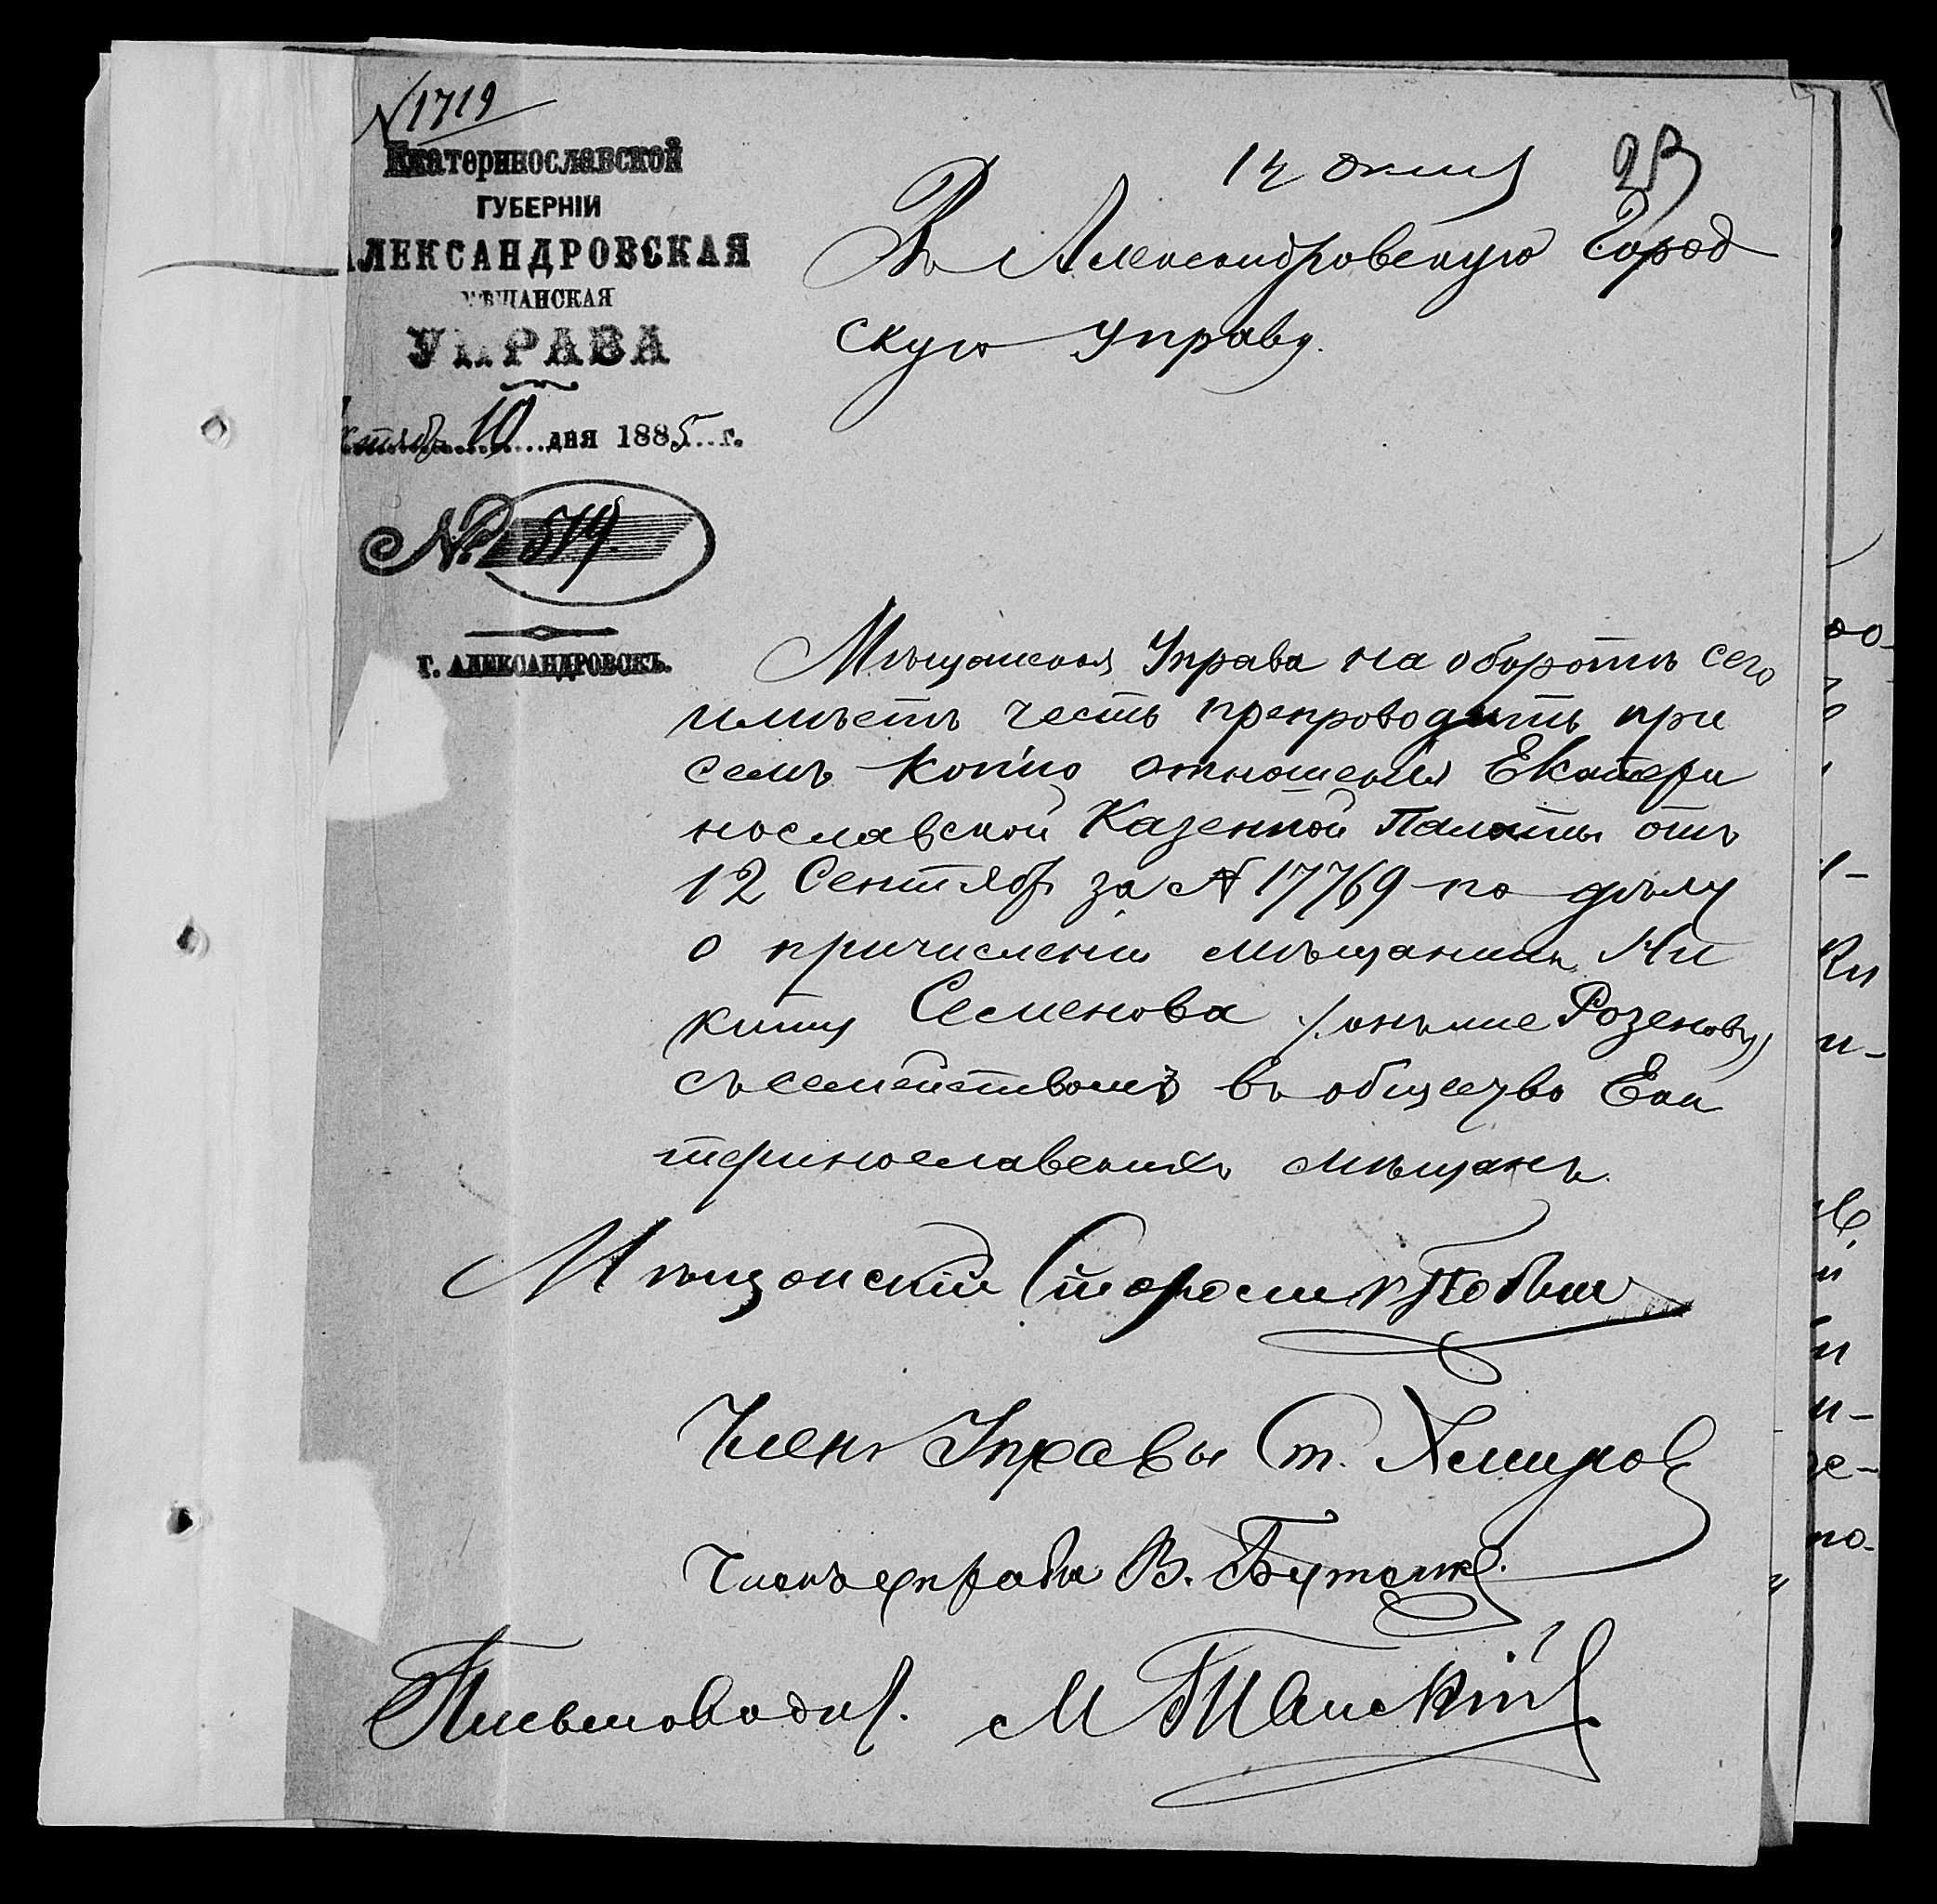 № 1719
Екатеринославской
ГУБЕРНІИ
АЛЕКСАНДРОВСКАЯ
МѢЩАНСКАЯ
УПРАВА
10 дня 1885 г.
№ 519.
г. АЛЕКСАНДРОВСКЪ.
23
Въ Александровскую Город
скую Управу.
Мѣщанская Управа на оборотѣ сего
имѣетъ честь препроводить при
семъ копію отношенія Екатери
нославской Казенной Палаты отъ
12 Сентябр за № 17769 по дѣлу
о причисленіи мѣщанина Ни
киту Семенова /онъ-же Розеновъ/
съ семействомъ въ общество Ека
теринославскихъ мѣщанъ.
Мѣщанскій Староста
Членъ Управы Ст.
Членъ управы В.
Письмоводи. М